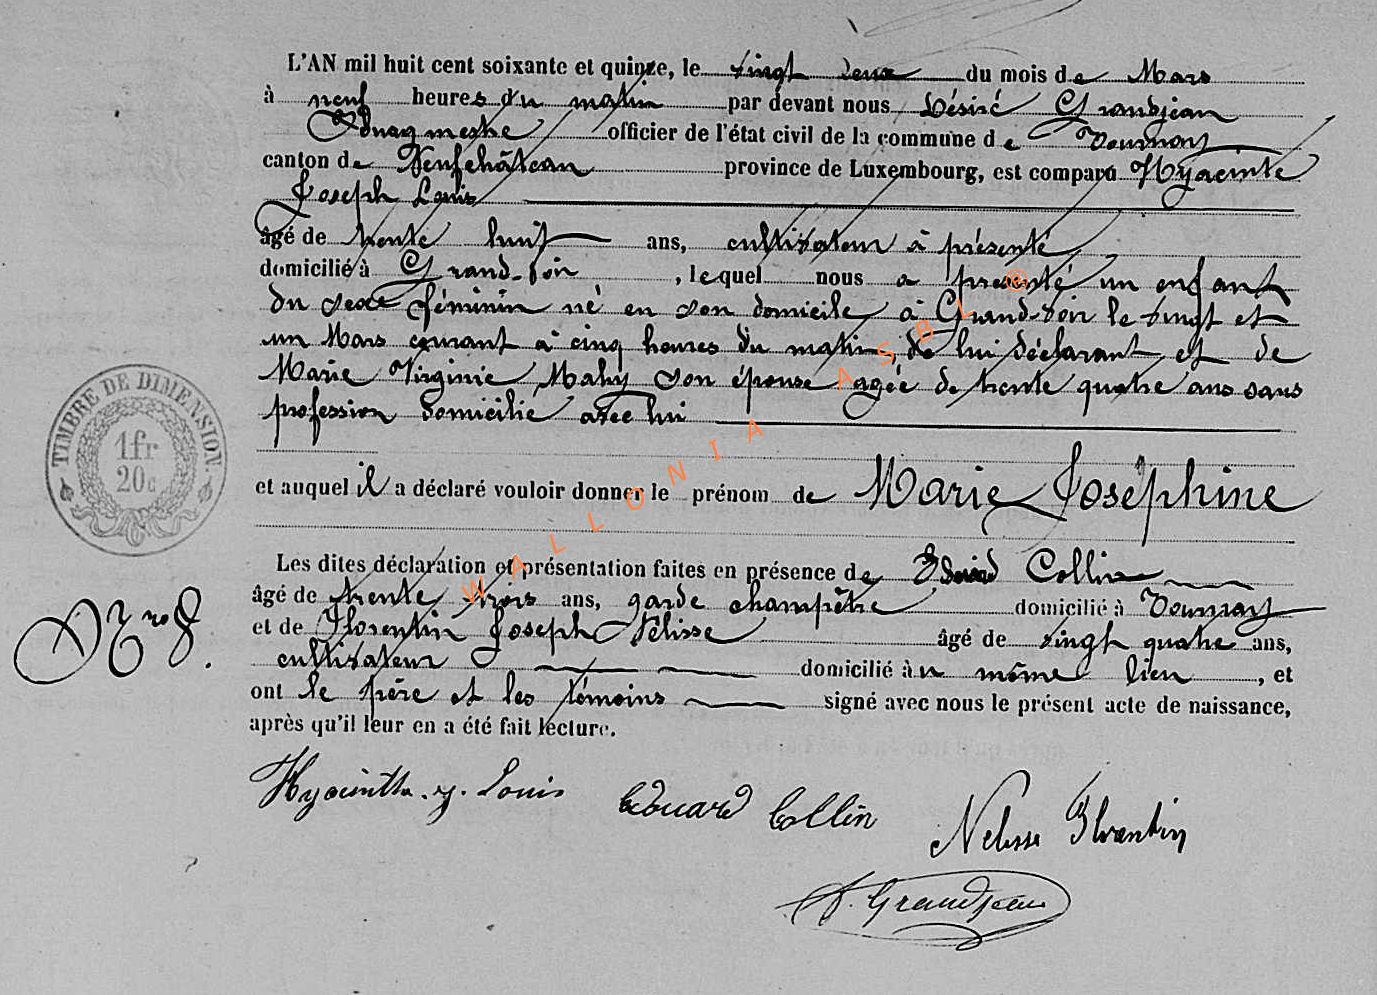 L'AN mil huit cent soixante et quinze, le vingt deux du mois de Mars
à neuf heures du matin par devant nous Désiré Grandjean
Bourgmestre officier de l'état civil de la commune de Tournay
canton de Neufchâteau province de Luxembourg, est comparu Hyacinte
Joseph Louis
âgé de trente huit ans, cultivateur à présenté
domicilié à Grand-Voir, lequel nous a presenté un enfant
du sexe féminin né en son domicile à Grand-Voir le vingt et
un Mars courant à cinq heures du matin, de lui déclarant et de
Marie Virginie Mahy son épouse agée de trente quatre ans sans
profession domicilié avec lui
et auquel il a déclaré vouloir donner le prénom de Marie Joséphine
Les dites déclaration et présentation faites en présence de Edouard Collin
âgé de trente trois ans, garde champêtre domicilié à Tournay
et de Florentin Joseph Nélisse âgé de vingt quatre ans,
cultivateur domicilié au même lieu, et
ont le père et les témoins signé avec nous le présent acte de naissance,
après qu'il leur en a été fait lecture.
TIMBRE DE DIMENSION.
1fr
20c
Nro 8.
Hyacinthe. j. Louis Edouard Collin Nelisse Florentin
D. Grandjean
WALLONIA ASBL @